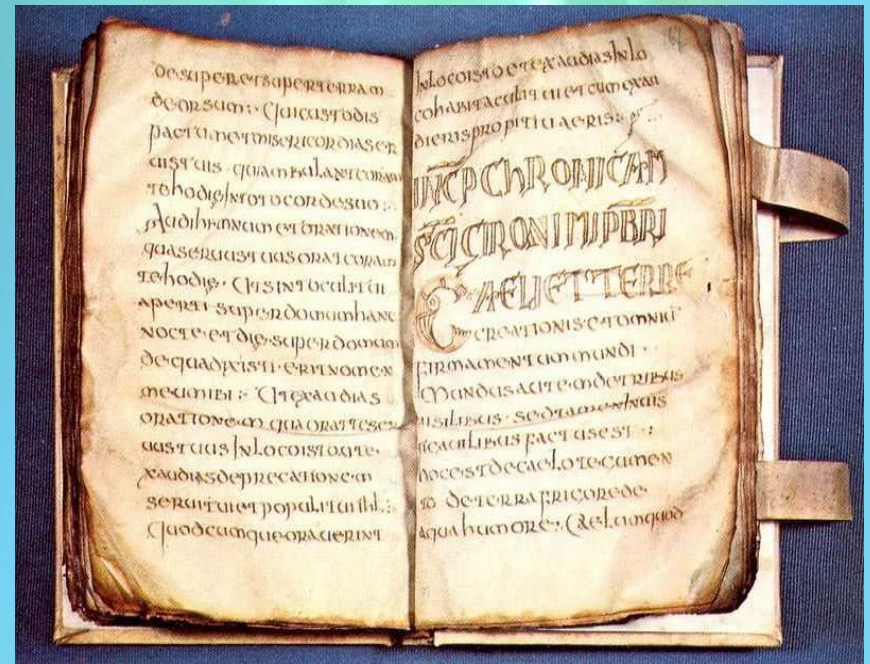 desuper et super terram
deorsum : Qui custodis
pactum et misericordias ser
uis tuis · qui ambulant coram
te hodie In toto corde suo :
Audi hymnum et orationem
qua seruus tuus orat coram
te hodie · Ut sint oculi tui
aperti super domum hanc
nocte · et die super domum
de qua dixisti · erit nomen
meum ibi : Ut exaudias
orationem qua orat te ser
uus tuus In loco isto ut e
xaudias deprecationem
serui tui et populi tui ihl :
Quodcumque orauerint
In loco isto et exaudias In lo
co habitaculi tui et cum exau
dieris propitiaueris :
INCP CHRONICAM
SCI GIRONIMI PBRI
CAELI ET TERRE
creationis et omniu
firmamentum mundi ·
Mundus autem de tribus
uisilibus · sed tamen Inuis
factus est :
hoc est de caelo
de terra fricore de
aqua humore : Caelum quod